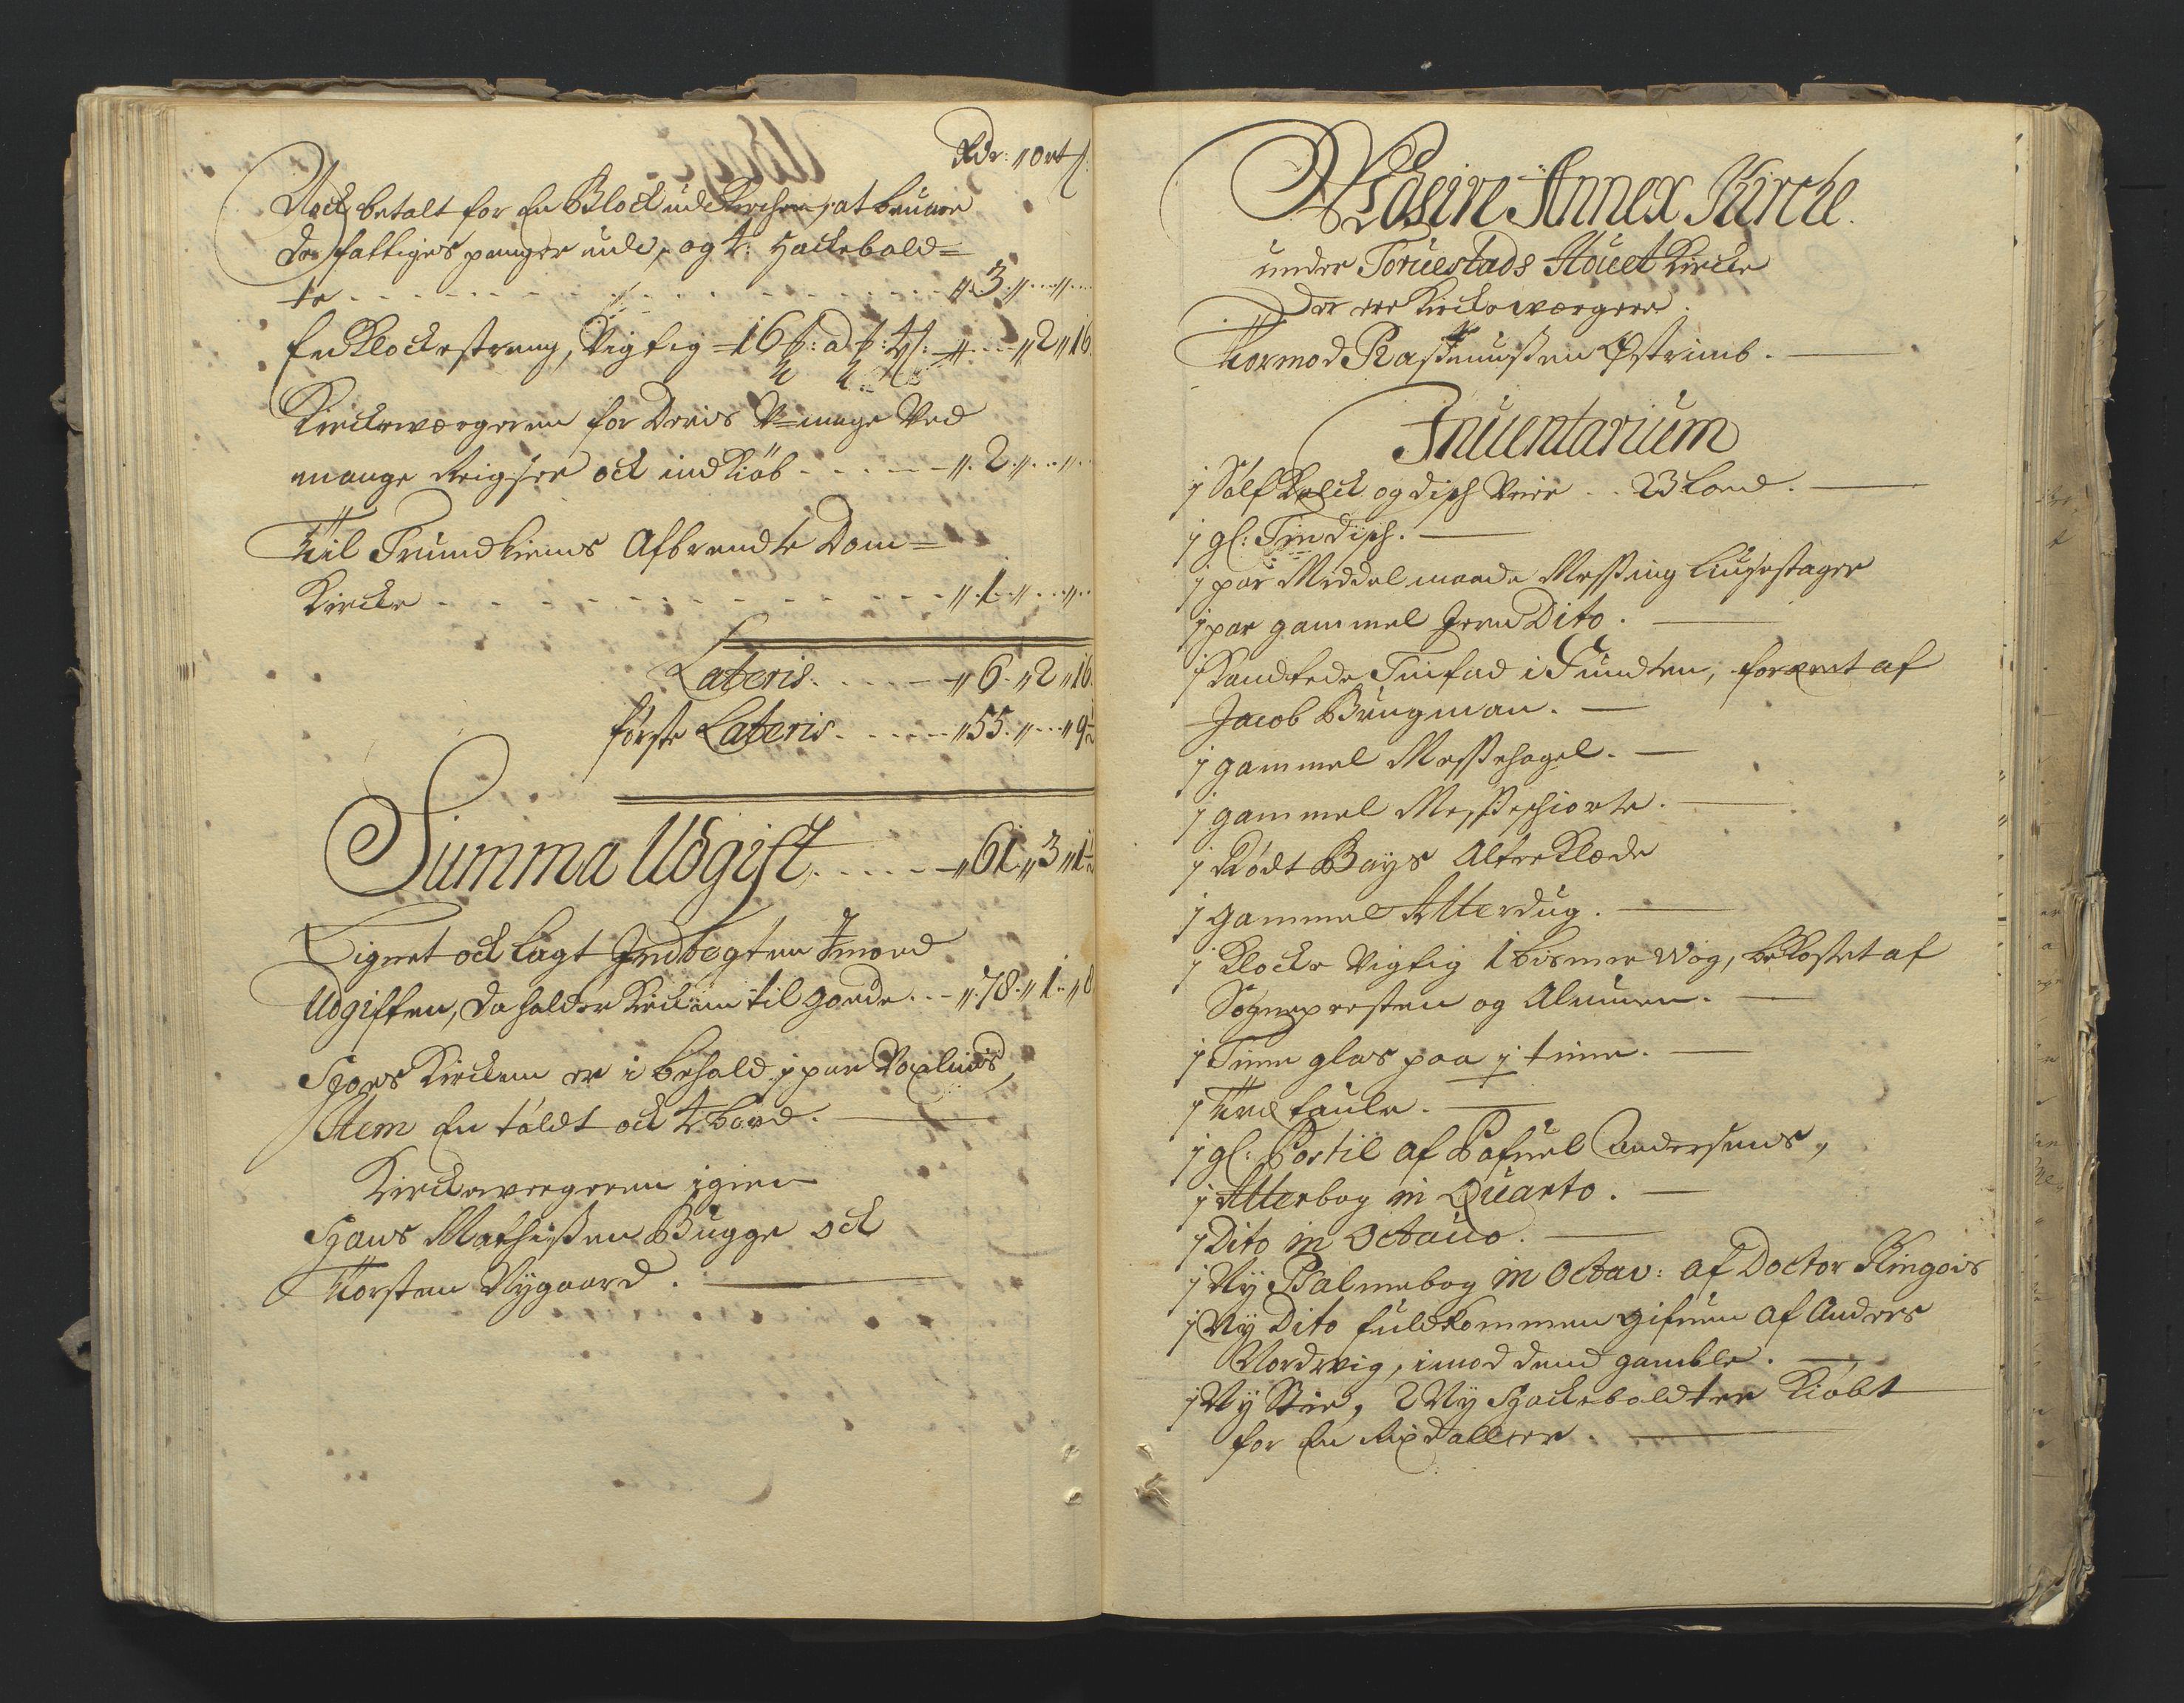 Rdr: " Ort ß.
Nock betalt for En Block udi Kirchen, at bruuis
de fattiges penger udi, og 4: Hackebold=
te - - - - " 3 " - "
En Klockestreng, Vigtig - 16 ℔: a ℔: 4 ß: - " - " 2 " 16
Kirckeværgeren for Deris U=mage Ved
mange Reigser ock indkiöb - - - " 2 " - "
Til Trundhiems Afbrendte Dom=
Kircke - - - - " 1 " - "
Lateris - - - " 6 " 2 " 16
förste Lateris - - - " 55 " - " 9½
Summa Udgift - - - " 61 " 3 " 1½
Lignet ock lagt Indtegten Imod
Udgiften, da holder Kircken til goede - " 78 " 1 " 8
Hoes Kircken er i behold j par Voxlius,
Item En töldt ock 4 bord.
Kirckeværgeren igien
Hans Mathisen Bugge ock
Torsten Nygaard.
Udsire Annex Kirche.
under Toruestads Houet Kircke
Der ere Kirckeværgere.
Tormod Rasmussen Østrimb.
Inuentarium
j Sölf Kalck og disch Veier - - 23 Lood.
j gl: Tin disch.
j par Middelmaade Messing Liusestager
j par gammel Jern Dito.
j Kandtede Tinfad i Fundten, foræret af
Jacob Brugman.
j gammel Messehagel.
j gammel Messeschiorte.
j Rödt Bays Alterklæde
j gammel Alterdug.
j Klocke Vigtig 1 bismer Wog, bekostet af
Sognepresten og Almuen.
j Time glas paa j time.
j Træ taule.
j gl: Postil af Pofuel Andersens,
j Alterbog in Quarto.
j Dito in Octauo.
j Ny Psalmebog in Octav: af Doctor Kingois
j Ny Dito fuldkommen gifuen af Anders
Nordvig, imod dend gamble.
j Ny Stie, 2 Ny Hackeboldter Kiöbt
for En Rixdaller.